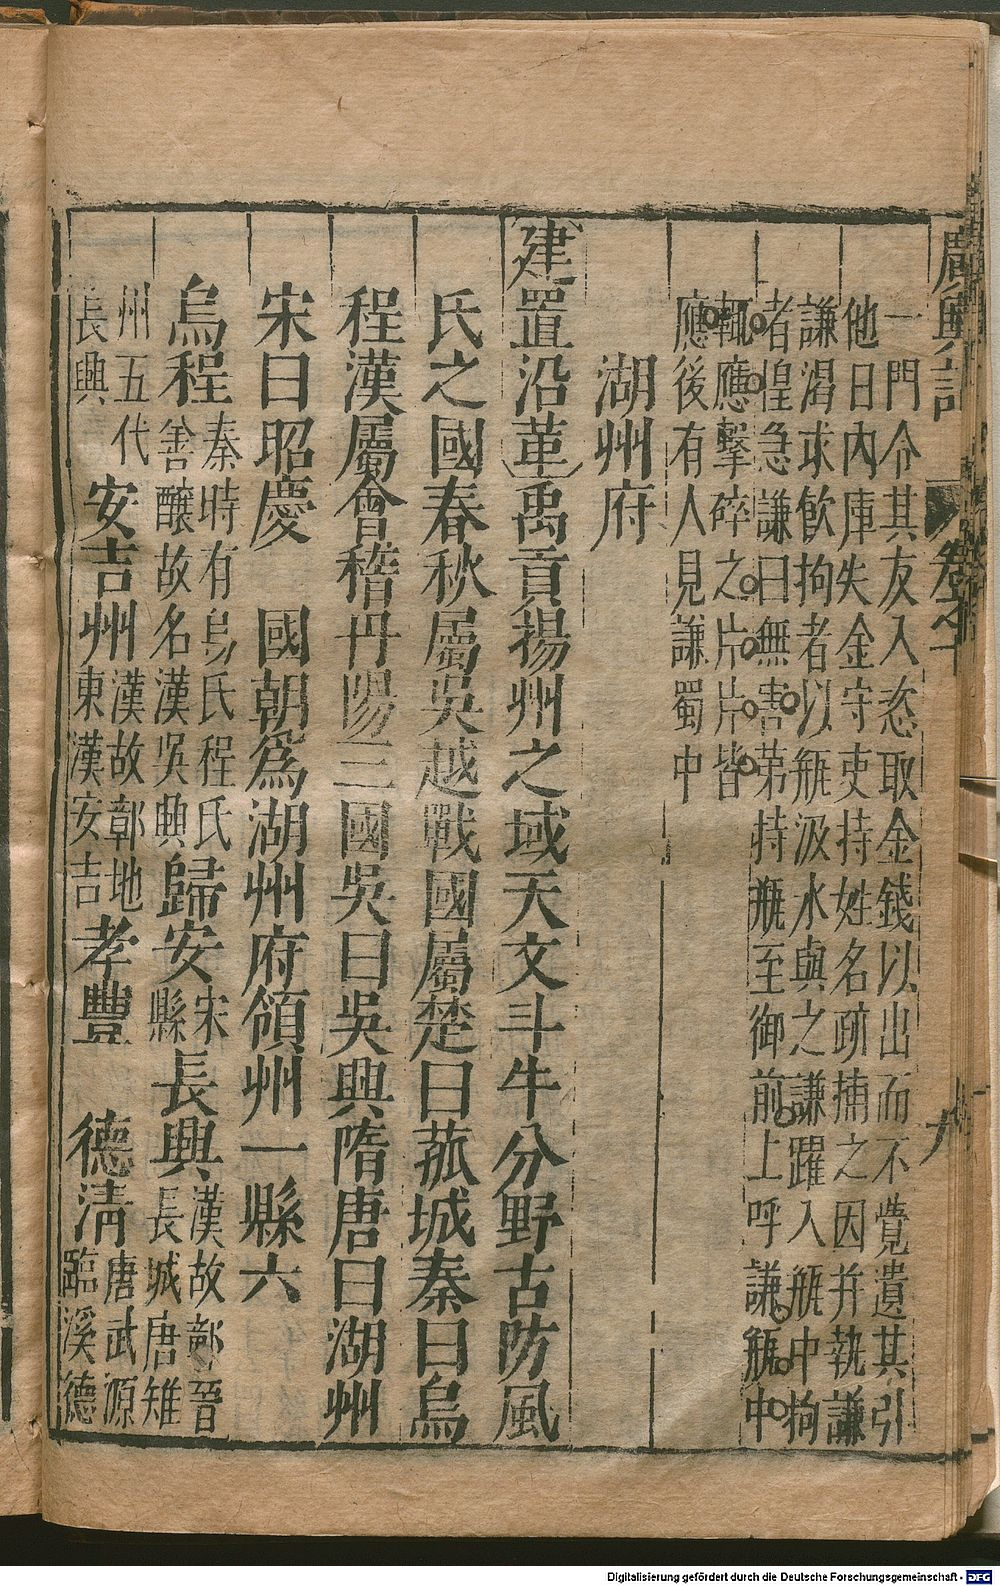 廣輿記
卷之十
九
一門令其友入恣取金錢以出而不覺遺其引
他日內庫失金守吏持姓名疏捕之因并執謙
謙渴求飲拘者以瓶汲水與之謙躍入瓶中拘
者惶急謙曰無害弟持瓶至御前上呼謙瓶中
輒應擊碎之片片皆
應後有人見謙蜀中
湖州府
建置沿革禹貢揚州之域天文斗牛分野古防風
氏之國春秋屬吳越戰國屬楚曰菰城秦曰烏
程漢屬會稽丹陽三國吳曰吳興隋唐曰湖州
宋曰昭慶 國朝爲湖州府領州一縣六
烏程秦時有烏氏程氏善釀故名漢吳興歸安宋縣長興漢故鄣晉長城唐雉
州五代長興安吉州漢故鄣地東漢安吉孝豐 德清唐武源臨溪德
Digitalisierung gefördert durch die Deutsche Forschungsgemeinschaft - DFG